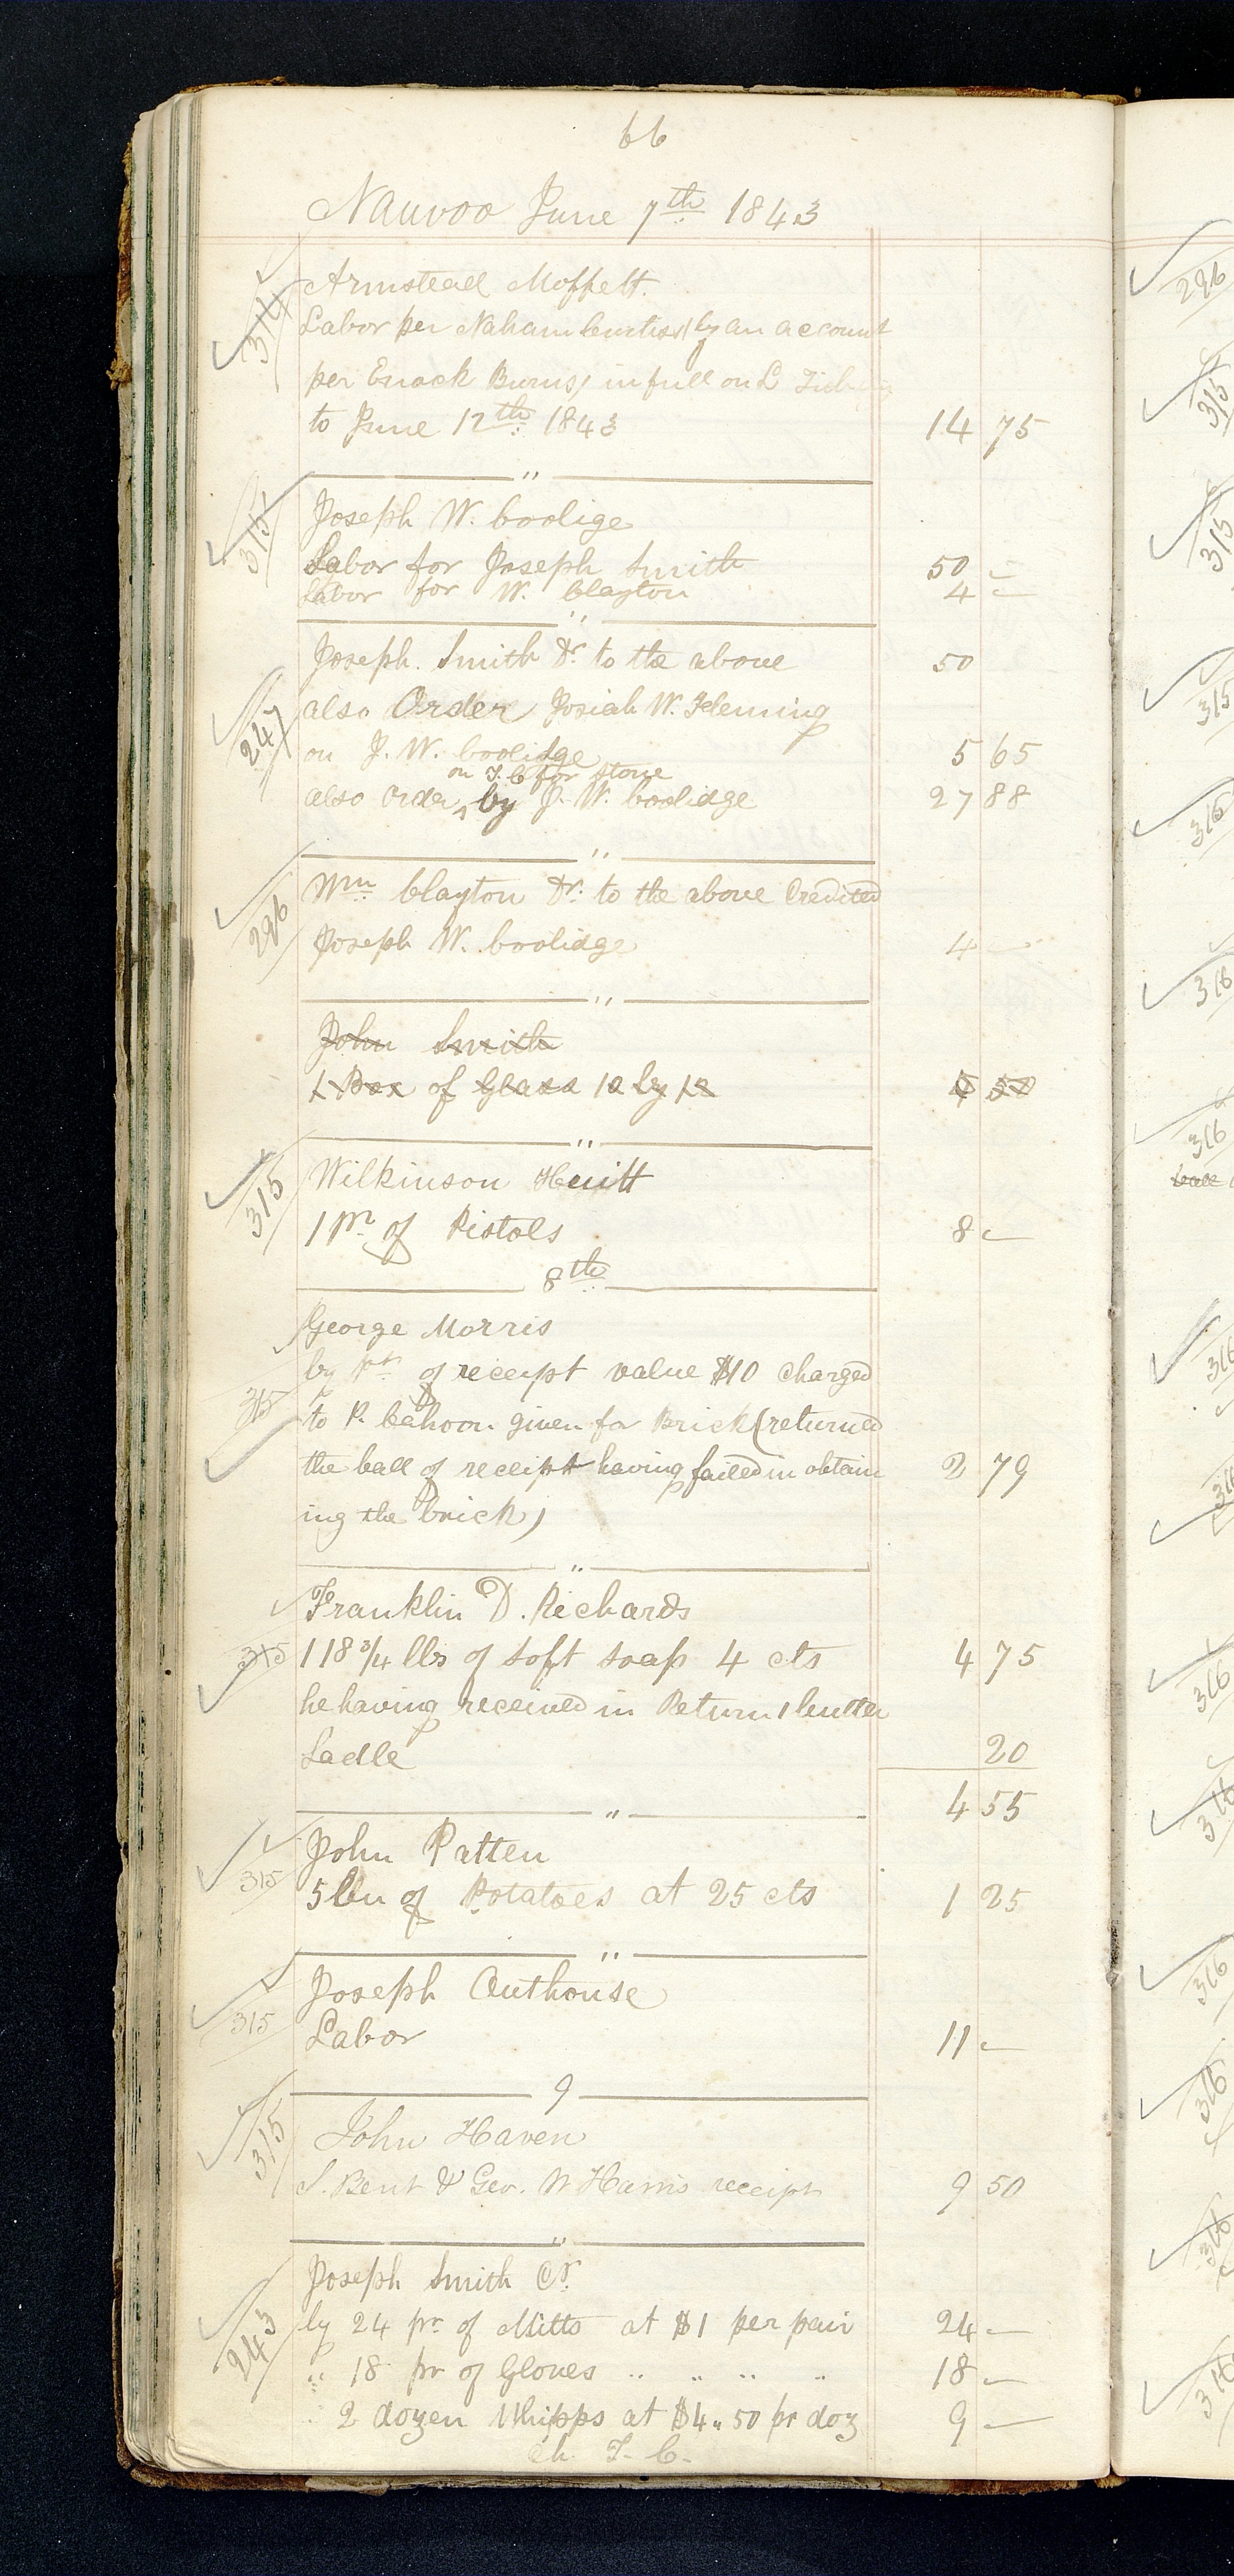 66
Nauvoo June 7th 1843
314 Armstead Moffett.
Labor per Naham Curtiss (by an account
per Enock Burns) in full on L
to June 12th 1843 14 75
"
315 Joseph W. Coolige
Labor for Joseph Smith 50 –
Labor for W. Clayton 4 –
"
Joseph. Smith Dr. to the above 50
247 also Order Josiah W. Fleming
on J. W. Coolidge 5 65
on T. C for stone
also Order ^ by J. W. Coolidge 27 88
"
296 Wm Clayton Dr. to the above Credited
Joseph W. Coolidge 4 –
"
John Smith
1 Box of Glass 10 by 12 5 50
"
315 Wilkinson Hewitt
1 pr of Pistols 8 –
8th
George Morris
by pt of receipt value $10 charged
315 to P. Cahoon given for Brick (returned
the ball of receipt having failed in obtain 2 79
ing the brick)
"
Franklin D. Richards
315 118 3/4 lbs of soft soap 4 cts 4 75
he having received in Return 1 butter
Ladle 20
4 55
"
John Patten
315 5 bu of Potatoes at 25 cts 1 25
"
Joseph Outhouse
315 Labor 11 –
9
315 John Haven
S. Bent & Geo. W Harris receipt 9 50
"
Joseph Smith Cr.
243 by 24 pr. of Mitts at $1 per pair 24 –
" 18 pr of Gloves " " " " 18 –
" 2 dozen Whipps at $4.50 pr doz 9 –
ch. T. C.
296
315
315
315
316
316
316
ball
316
316
316
316
316
316
316
316